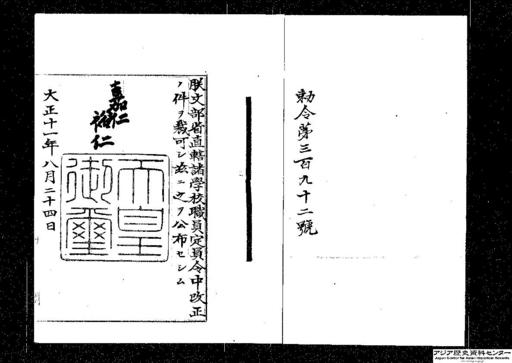 勅令第三百九十二號
朕文部省直轄諸學校職員定員令中改正
ノ件ヲ裁可シ茲ニ之ヲ公布セシム
嘉仁
裕仁
天皇
御璽
大正十一年八月二十四日
アジア歴史資料センター
Japan Center for Asian Historical Records